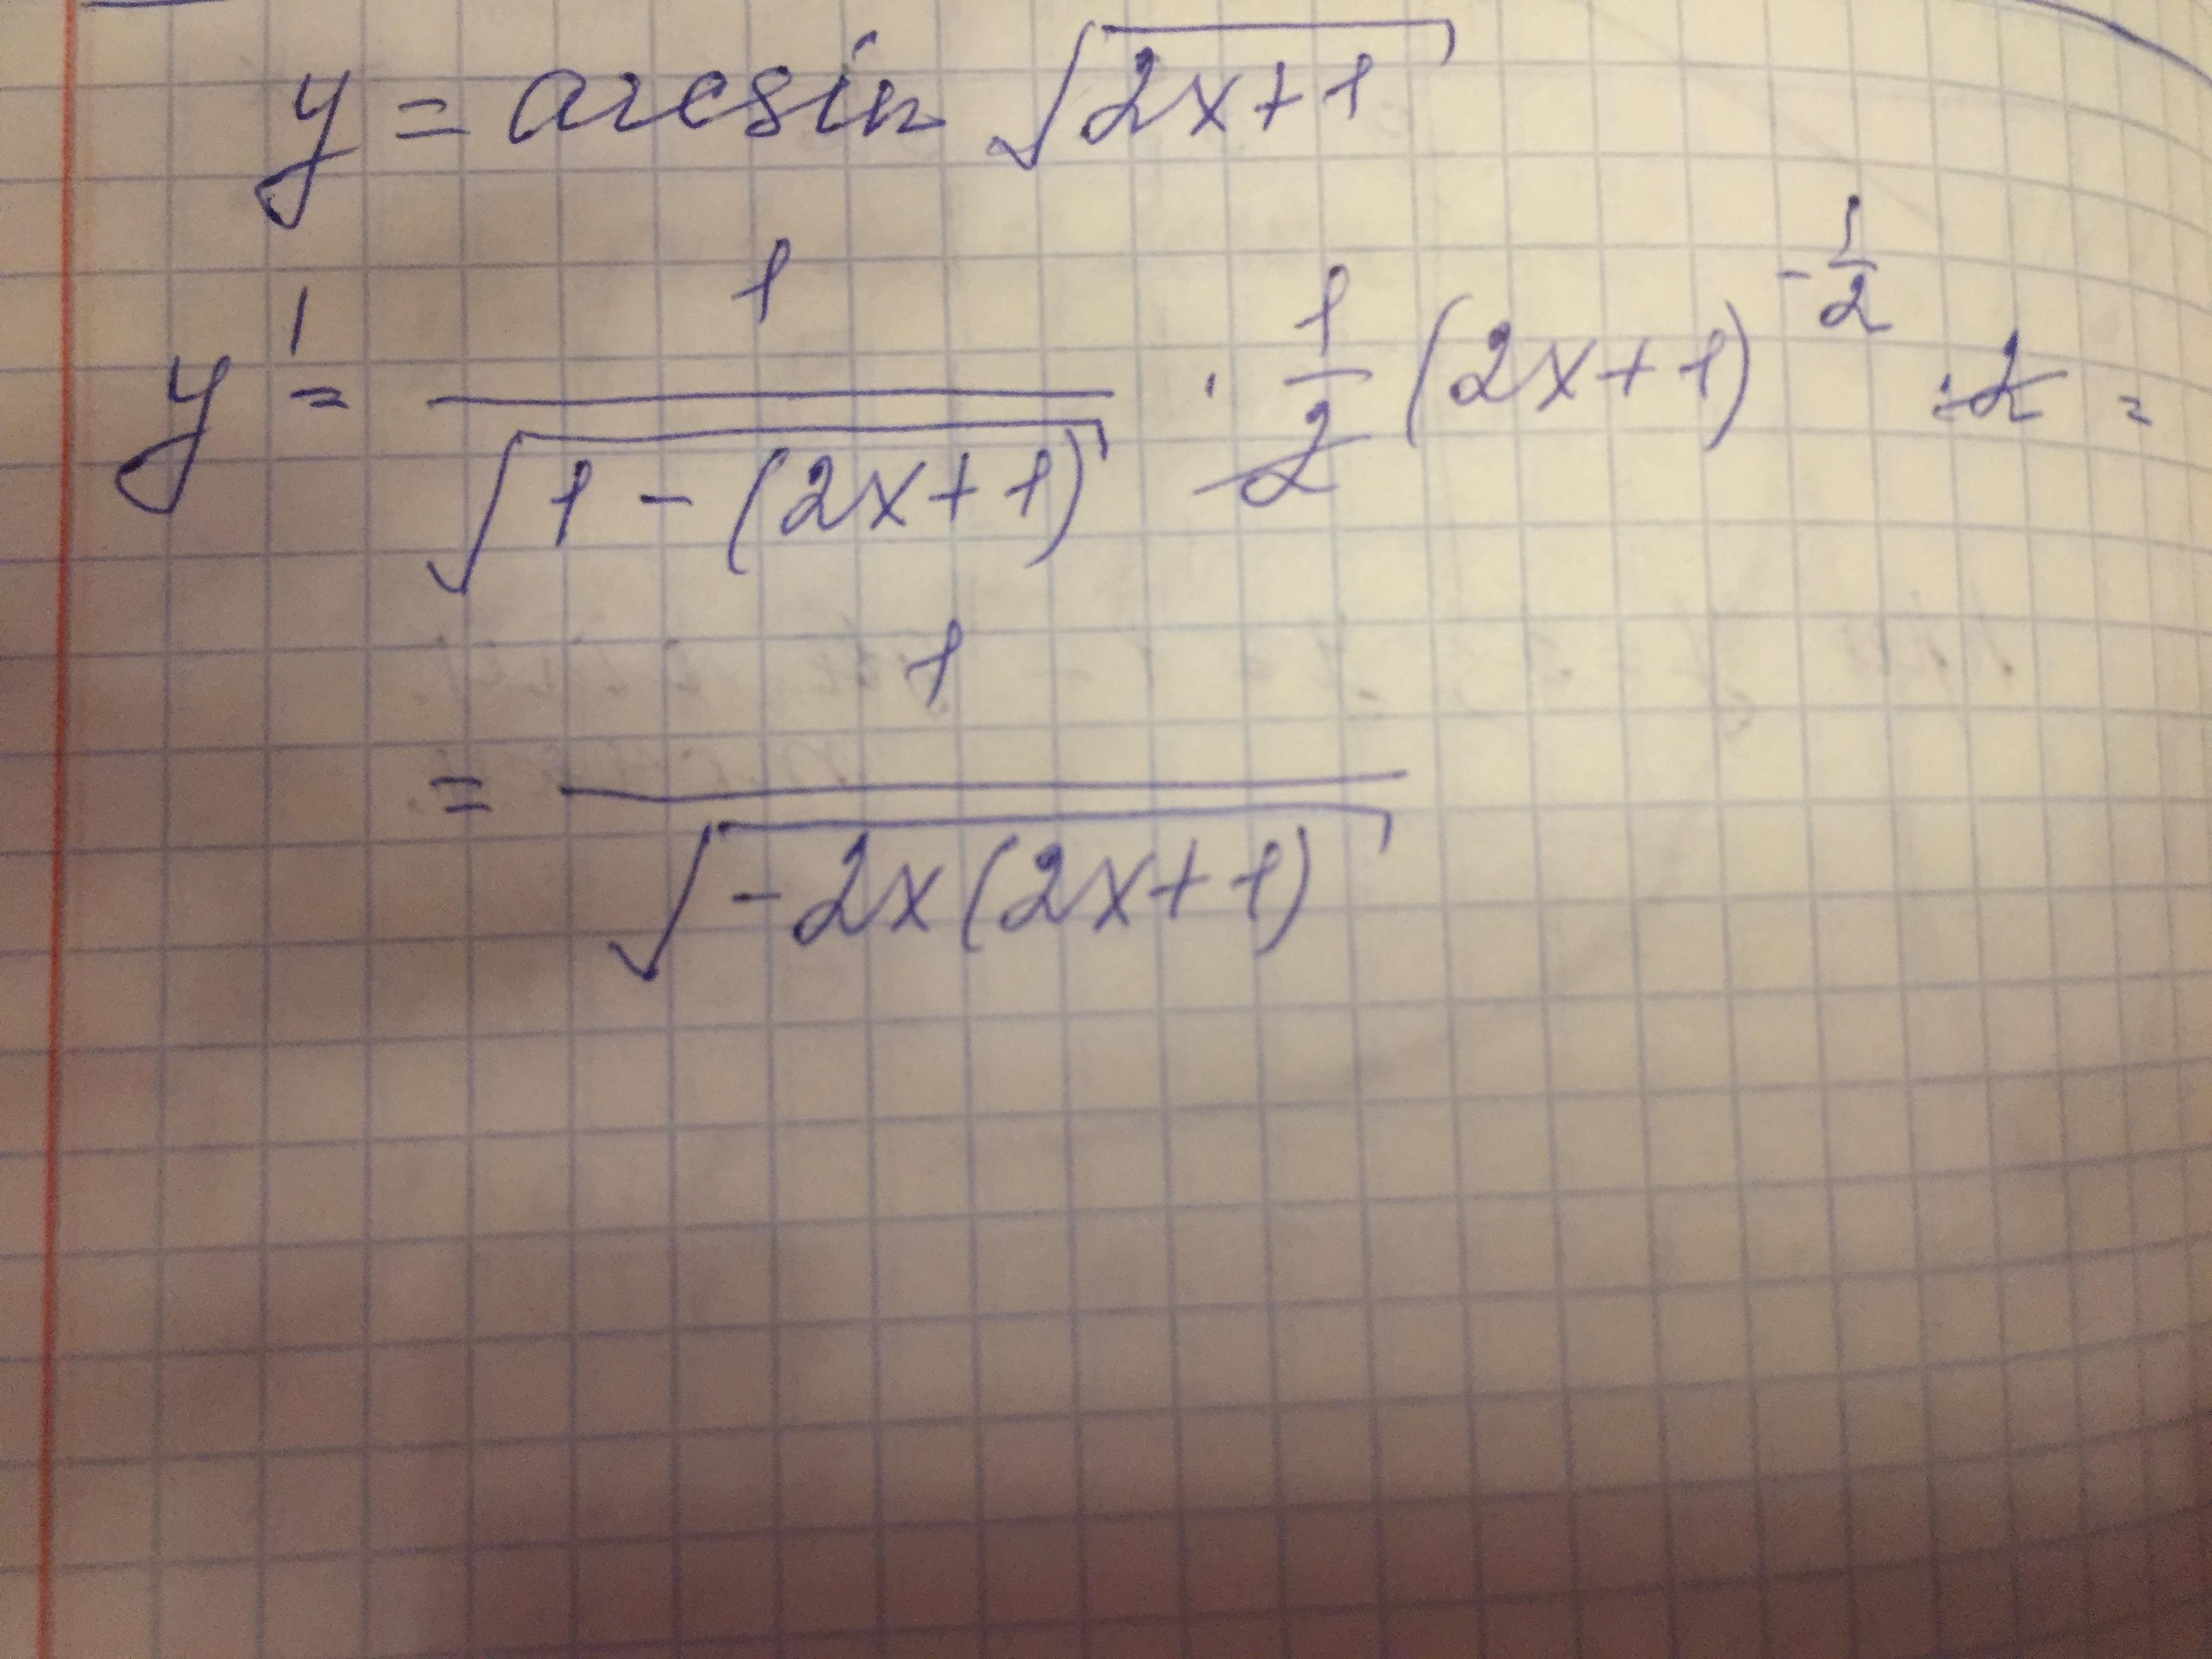 y = arcsin √(2x+1)
y' = 1/√(1-(2x+1)) · 1/2 (2x+1)^(-1/2) · 2 =
= 1/√(-2x(2x+1))